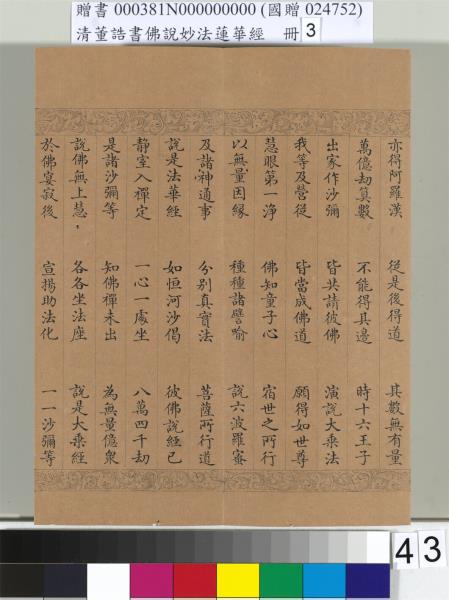 贈書 000381N000000000 (國贈 024752)
清董誥書佛說妙法蓮華經 冊 3
亦得阿羅漢 從是後得道 其數無有量
萬億劫筭數 不能得其邊 時十六王子
出家作沙彌 皆共請彼佛 演說大乘法
我等及營從 皆當成佛道 願得如世尊
慧眼第一淨 佛知童子心 宿世之所行
以無量因緣 種種諸譬喻 說六波羅蜜
及諸神通事 分別真實法 菩薩所行道
說是法華經 如恒河沙偈 彼佛說經已
靜室入禪定 一心一處坐 八萬四千劫
是諸沙彌等 知佛禪未出 為無量億衆
說佛無上慧， 各各坐法座 說是大乘經
於佛宴寂後 宣揚助法化 一一沙彌等
43